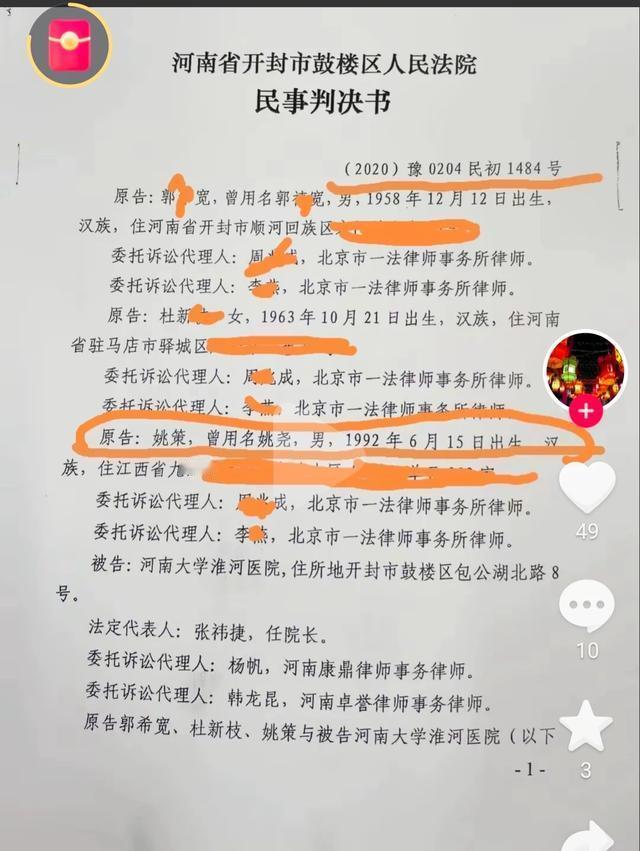 河南省开封市鼓楼区人民法院
民事判决书
(2020)豫 0204 民初 1484 号
原告:郭宽,曾用名郭宽,男,1958 年 12 月 12 日出生,
汉族,住河南省开封市顺河回族区
委托诉讼代理人:周成,北京市一法律师事务所律师。
委托诉讼代理人:李燕,北京市一法律师事务所律师。
原告:杜新 女,1963 年 10 月 21 日出生,汉族,住河南
省驻马店市驿城区
委托诉讼代理人:周兆成,北京市一法律师事务所律师。
委托诉讼代理人:李燕,北京市一法律师事务所律师。
原告:姚策,曾用名姚尧,男,1992 年 6 月 15 日出生,汉
族,住江西省九
委托诉讼代理人:周兆成,北京市一法律师事务所律师。
委托诉讼代理人:李燕,北京市一法律师事务所律师。
被告:河南大学淮河医院,住所地开封市鼓楼区包公湖北路 8
号。
法定代表人:张祎捷,任院长。
委托诉讼代理人:杨帆,河南康鼎律师事务律师。
委托诉讼代理人:韩龙昆,河南卓誉律师事务律师。
原告郭希宽、杜新枝、姚策与被告河南大学淮河医院(以下
- 1 -
49
10
3